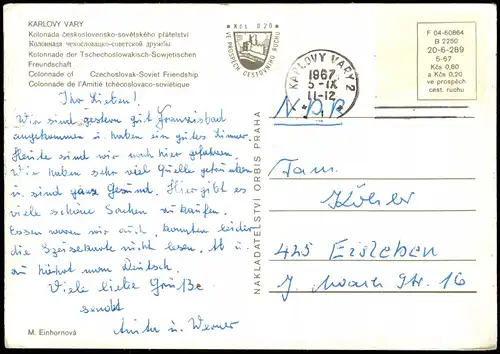 KARLOVY VARY
Kolonáda československo-sovětského přátelství
Колоннада чехословацко-советской дружбы
Kolonnade der Tschechoslowakisch-Sowjetischen
Freundschaft
Colonnade of Czechoslovak-Soviet Friendship
Colonnade de l'Amitié tchécoslovaco-soviétique
Kčs 0.20
VE PROSPĚCH CESTOVNÍHO RUCHU
KARLOVY VARY 2
1967
5-IX
11-12
F 04-60864
B 2250
20-6-289
5-67
Kčs 0,80
a Kčs 0,20
ve prospěch
cest. ruchu
Ihr Lieben!
Wir sind gestern gut Franzisbad
angekommen u. haben ein gutes Zimmer.
Heute sind wir nach hier gefahren.
Wir haben sehr viel Quelle getrunken
u. sind ganz Gesund. Hier gibt es
viele schöne Sachen zu kaufen.
Essen waren wir auch, konnten leider
die Speisekarte nicht lesen. Ab u.
zu hört man Deutsch.
Viele liebe Grüße
sendet
Anita u. Werner
M. Einhornová
NAKLADATELSTVÍ ORBIS PRAHA
N.D.R.
Fam.
Köhler
425 Eisleben
J. Noack Str. 16